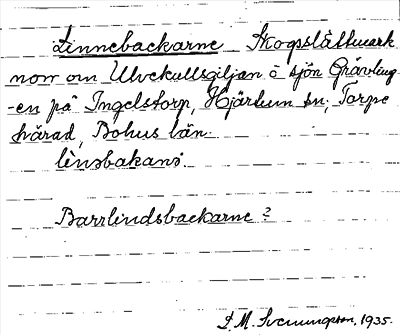 Linnebackarne Skogsslåttmark
norr om Ulvekullsgiljan ö sjön Grävling
-en på Ingelstorp, Hjärtum sn; Torpe
härad, Bohus län.
linsbakani
Barrlindsbackarne?
S. M. Svenungsson, 1935.